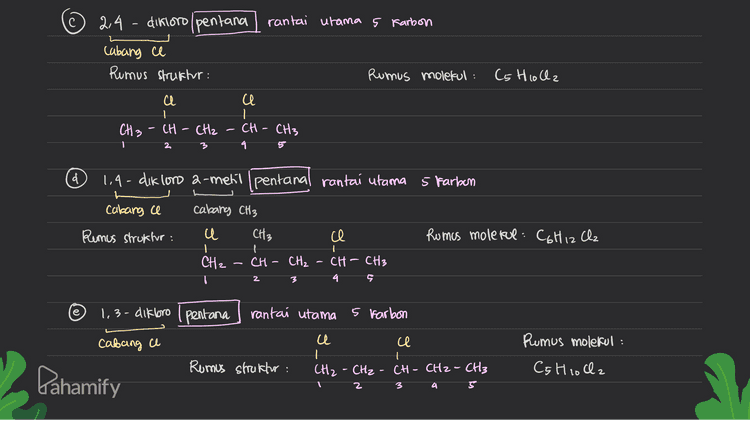 c 2,4 - dikloro pentana rantai utama 5 karbon
Cabang Cl
Rumus struktur : Rumus molekul : C5 H10 Cl2
Cl Cl
CH3 - CH - CH2 - CH - CH3
1 2 3 4 5
d 1,4 - dikloro 2-metil pentana rantai utama 5 karbon
Cabang Cl cabang CH3
Rumus struktur : Cl CH3 Cl Rumus molekul : C6H12 Cl2
CH2 - CH - CH2 - CH - CH3
1 2 3 4 5
e 1,3 - dikloro pentana rantai utama 5 karbon
cabang Cl Cl Cl Rumus molekul :
Rumus struktur : CH2 - CH2 - CH - CH2 - CH3 C5 H10 Cl2
1 2 3 4 5
Pahamify